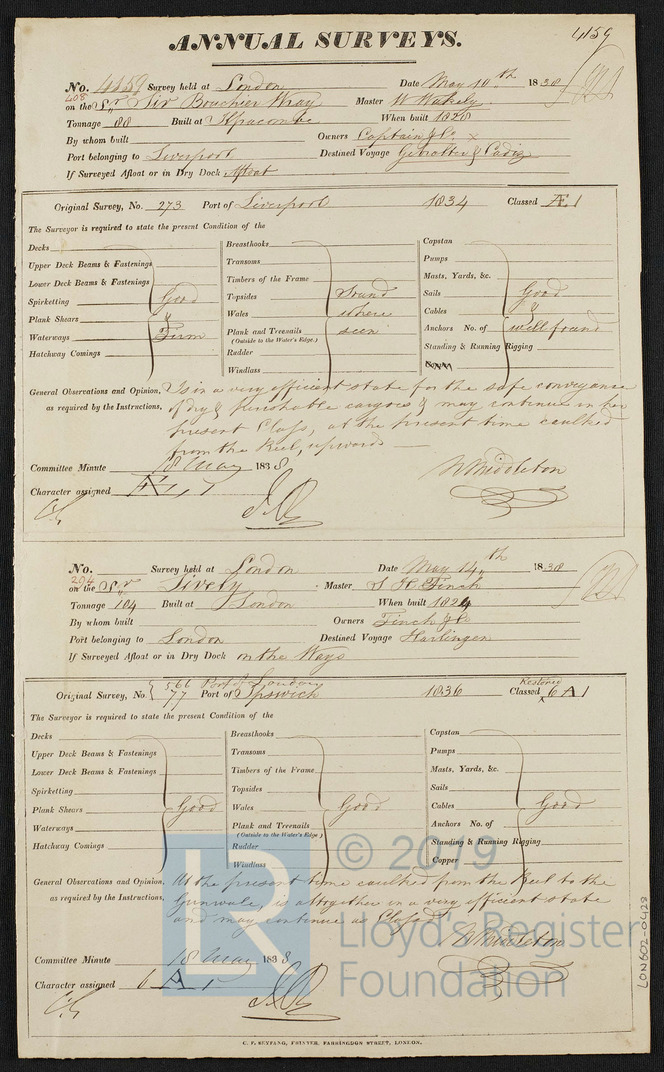 4159
ANNUAL SURVEYS.
No. 4159 Survey held at London Date May 10th 1838
408 on the Sr Sir Bouchier Wray Master W Wakely
Tonnage 88 Built at Ilfracombe When built 1828
By whom built Owners Captain & Co. x
Port belonging to Liverpool Destined Voyage Gibralter & Cadiz
If Surveyed Afloat or in Dry Dock Afloat
Original Survey, No. 273 Port of Liverpool 1834 Classed Æ 1
The Surveyor is required to state the present Condition of the
Decks
Upper Deck Beams & Fastenings
Lower Deck Beams & Fastenings
Spirketting
Plank Shears
Waterways
Hatchway Comings
Good & Firm
Breasthooks
Transoms
Timbers of the Frame
Topsides
Wales
Plank and Treenails
(Outside to the Water's Edge.)
Rudder
Windlass
Sound where seen
Capstan
Pumps
Masts, Yards, &c.
Sails
Cables
Anchors No. of
Standing & Running Rigging
Good & well found
General Observations and Opinion, Is in a very efficient state for the safe conveyance
as required by the Instructions, of dry & perishable cargoes & may continue in her
present Class, at the present time caulked
from the Keel, upwards —
Committee Minute 18 May 1838 W Middleton
Character assigned Æ 1
No. Survey held at London Date May 14th 1838
294 on the Sr Lively Master S H Finch
Tonnage 104 Built at London When built 1824
By whom built Owners Finch & Co
Port belonging to London Destined Voyage Harlingen
If Surveyed Afloat or in Dry Dock on the Ways
566 Port of London
Original Survey, No. 77 Port of Ipswich 1836 Classed Restored 6 A 1
The Surveyor is required to state the present Condition of the
Decks
Upper Deck Beams & Fastenings
Lower Deck Beams & Fastenings
Spirketting
Plank Shears
Waterways
Hatchway Comings
Good
Breasthooks
Transoms
Timbers of the Frame
Topsides
Wales
Plank and Treenails
(Outside to the Water's Edge)
Rudder
Windlass
Good
Capstan
Pumps
Masts, Yards, &c.
Sails
Cables
Anchors No. of
Standing & Running Rigging
Copper
Good
General Observations and Opinion, At the present time caulked from the Keel to the
as required by the Instructions, Gunwale, is altogether in a very efficient state
and may continue as Classed
W Middleton
Committee Minute 18 May 1838
Character assigned 6 A 1
C. F. SEYFANG, PRINTER, FARRINGDON STREET, LONDON.
LON602-0428
LR
© 2019
Lloyd's Register
Foundation